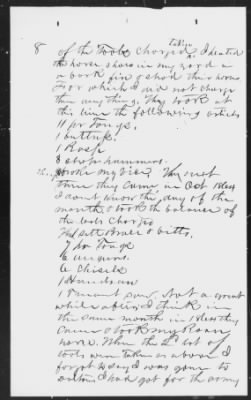 8 of the Tools charged taken I heated
the horse shoes in my yard in
a bark fire & shod their horses
For which I did not charge
them any thing. They took at
this time the following articles
11 pr Tongs.
1 buttriss.
1 Rasp
3 shop hammers.
broke my vice. The next
time they came in Oct 1862
I dont know the day of the
month & took the balance of
the tools charged
1 sett Brace & bitts,
7 pr Tongs
6 Chisels
1 Handsaw
1 Tenant saw. Not a great
while after I think in
the same month in 1862 they
came & took my Roan
horse. When the 2d lot of
tools were taken as above I
forgot to say I was gone to
I had got for the army